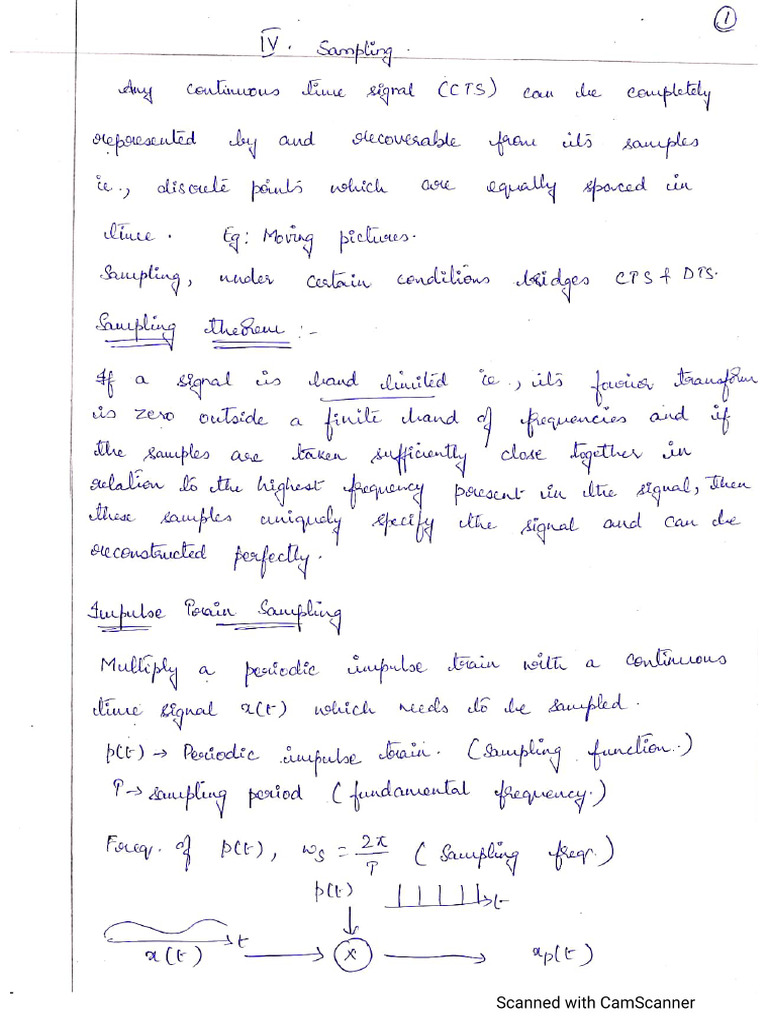 1
IV. Sampling.
Any continuous time signal (CTS) can be completely
represented by and recoverable from its samples
ie., discrete points which are equally spaced in
time. Eg: Moving pictures.
Sampling, under certain conditions bridges CTS & DTS.
Sampling theorem :-
If a signal is band limited ie., its fourier transform
is zero outside a finite band of frequencies and if
the samples are taken sufficiently close together in
relation to the highest frequency present in the signal, then
these samples uniquely specify the signal and can be
reconstructed perfectly.
Impulse Train Sampling
Multiply a periodic impulse train with a continuous
time signal x(t) which needs to be sampled.
p(t) → Periodic impulse train. (Sampling function.)
T → sampling period (fundamental frequency.)
Freq. of p(t), ws = 2π/T (Sampling freq.)
p(t) t
t
x(t) x xp(t)
Scanned with CamScanner